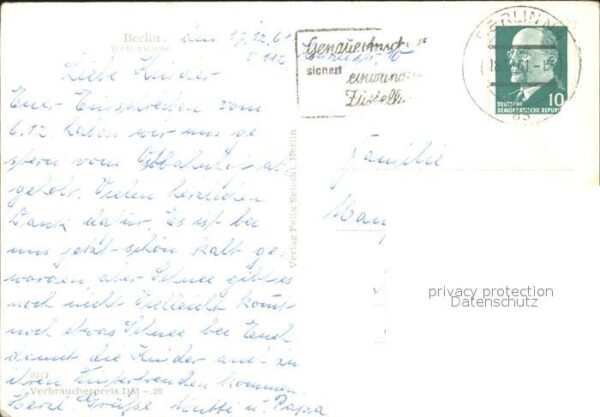 Berlin
Weberwiese
den 17.12.61
O 112
Liebe Kinder
Euer Einschreiben vom
6.12. haben wir uns ge
stern vom Ostbahnhof ab
geholt. Vielen herzlichen
Dank dafür. Es ist bei
uns jetzt schön kalt ge
worden aber Schnee gibt es
noch nicht. Vielleicht kommt
noch etwas Schnee bei Euch
damit die Kinder auch zu
ihren kommen.
Herzl. Grüße Mutti u. Papa
Verbraucherpreis DM -.20
Verlag Felix Setecki, Berlin
sichert
einwandfreie
Zustell
BERLIN
DEUTSCHE
DEMOKRATISCHE REPUBLIK
10
Familie
privacy protection
Datenschutz